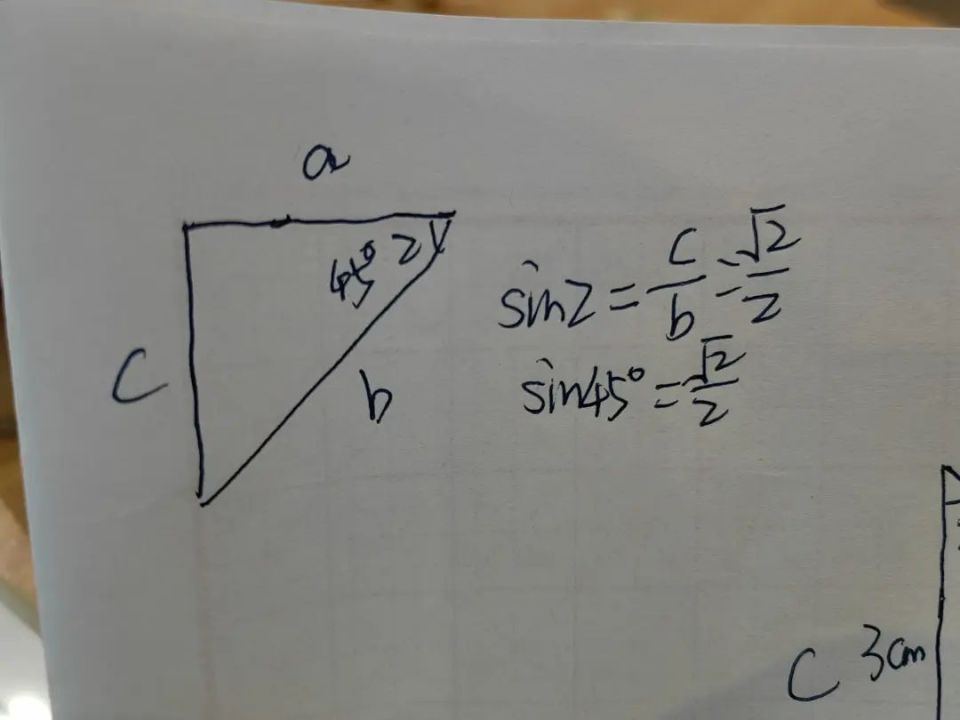 a
45° 2
C
b
sin2 = c/b = √2/2
sin45° = √2/2
C 3cm